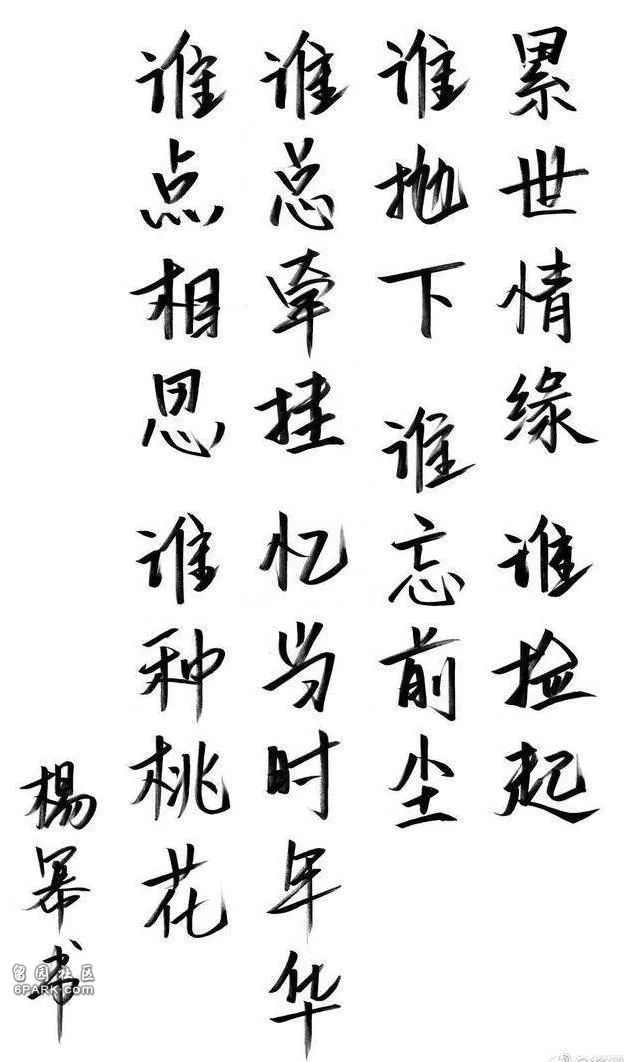 累世情缘 谁捡起
谁抛下 谁忘前尘
谁总牵挂 忆当时年华
谁点相思 谁种桃花
楊幂书
留园社区
6PARK.com